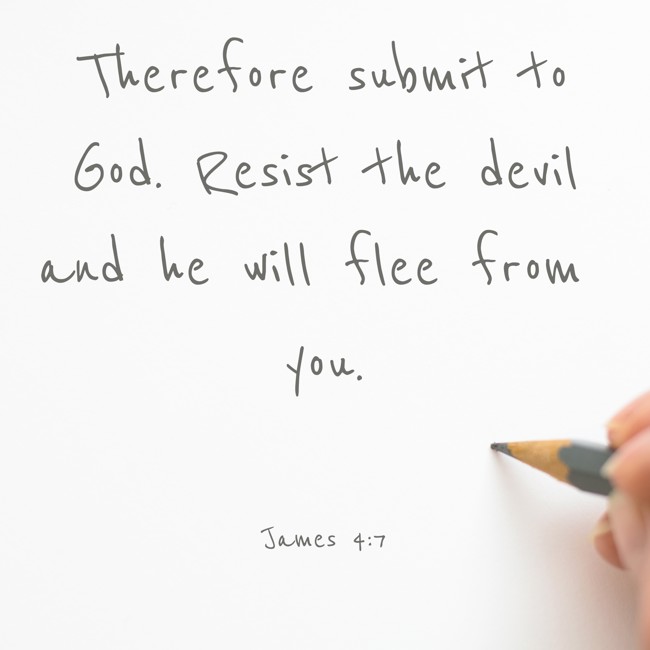 Therefore submit to
God. Resist the devil
and he will flee from
you.
James 4:7